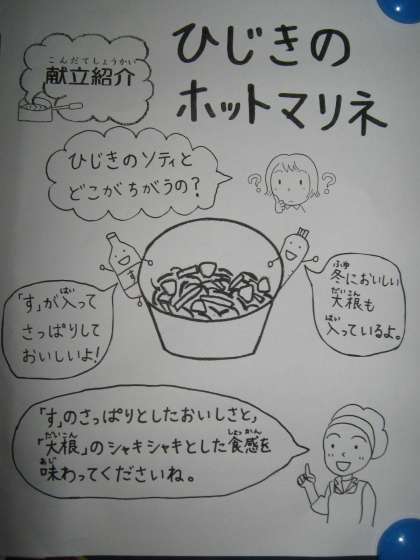 こんだてしょうかい
献立紹介
ひじきの
ホットマリネ
ひじきのソティと
どこがちがうの?
?
?
す
「す」が入って
さっぱりして
おいしいよ!
冬においしい
大根も
入っているよ。
「す」のさっぱりとしたおいしさと、
「大根」のシャキシャキとした食感を
味わってくださいね。